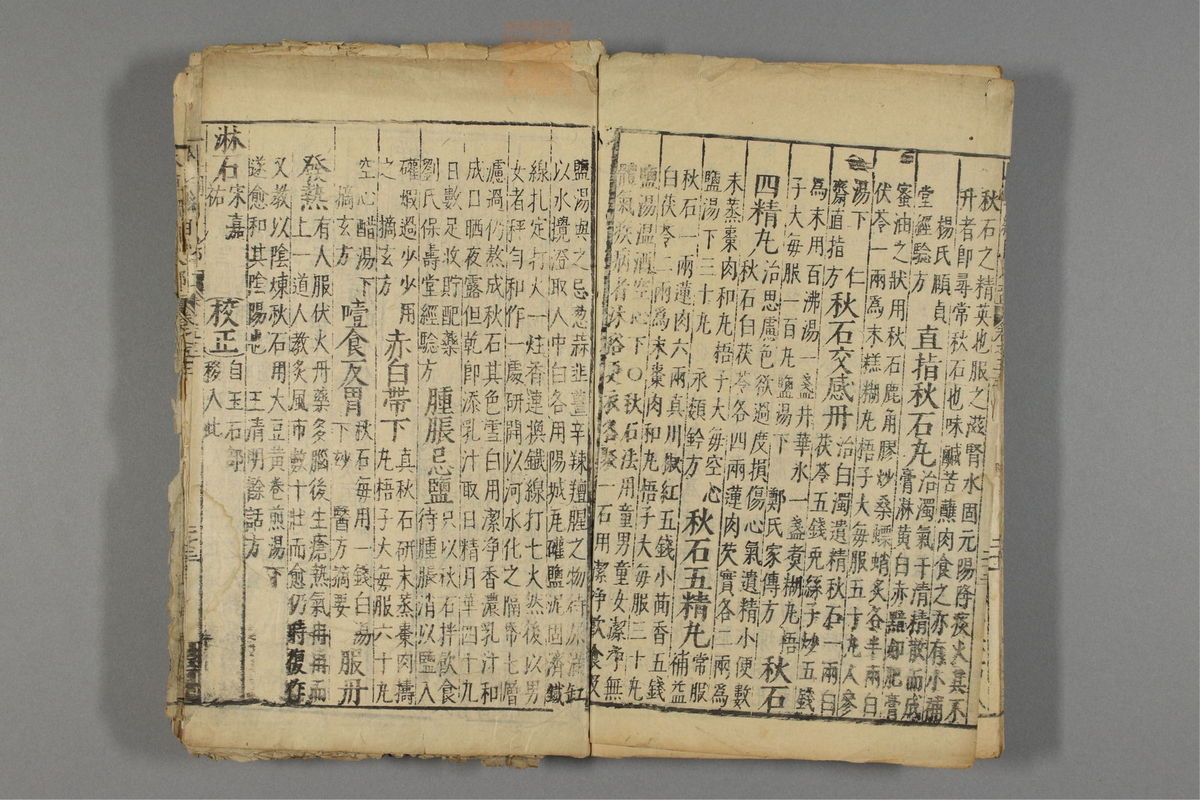 秋石之精英也服之滋腎水固元陽降痰火其不
升者即尋常秋石也味鹹苦蘸肉食之亦有小補
楊氏頤貞
堂經驗方
直指秋石丸
治濁氣干清精散而成
膏淋黄白赤黯如肥膏
蜜油之狀用秋石鹿角膠炒桑螵蛸炙各半兩白
伏苓一兩爲末糕糊丸梧子大每服五十丸人參
湯下仁
齋直指方
秋石交感丹
治白濁遺精秋石一兩白
茯苓五錢兎絲子炒五錢
爲末用百沸湯一盞井華水一盞煮糊丸梧
子大每服一百丸鹽湯下
鄭氏家傳方
秋石
四精丸
治思慮色欲過度損傷心氣遺精小便數
秋石白茯苓各四兩蓮肉芡實各二兩爲
末蒸棗肉和丸梧子大每空心
鹽湯下三十丸
永類鈐方
秋石五精丸
常服
補益
秋石一兩蓮肉六兩真川椒紅五錢小茴香五錢
白茯苓二兩爲末棗肉和丸梧子大每服三十丸
鹽湯溫酒空心下○秋石法用童男童女潔淨無
體氣疾病者沐浴更衣各聚一石用潔淨飲食及
鹽湯與之忌葱蒜韭薑辛辣羶腥之物待尿滿缸
以水攪澄取人中白各用陽城瓦罐鹽泥固濟鐵
線扎定打火一炷香連換鐵線打七火然後以男
女者秤勻和作一處研開以河水化之隔帋七層
濾過仍熬成秋石其色雪白用潔淨香濃乳汁和
成日晒夜露但乾即添乳汁取日精月華四十九
日數足收貯配藥
劉氏保壽堂經驗方
腫脹忌鹽
只以秋石拌飲食
待腫脹消以鹽入
礶煆過少少用
之摘玄方
赤白帶下
真秋石研末蒸棗肉擣
丸梧子大每服六十九
空心醋湯下
摘玄方
噎食反胃
秋石每用一錢白湯
下妙醫方摘要
服丹
發熱
有人服伏火丹藥多腦後生瘡熱氣冉冉而
上一道人教灸風市數十壯而愈仍時復作
又教以陰煉秋石用大豆黄卷煎湯下
遂愈和其陰陽也王清明餘話方
淋石
宋嘉
祐
校正
自玉石部
移入此